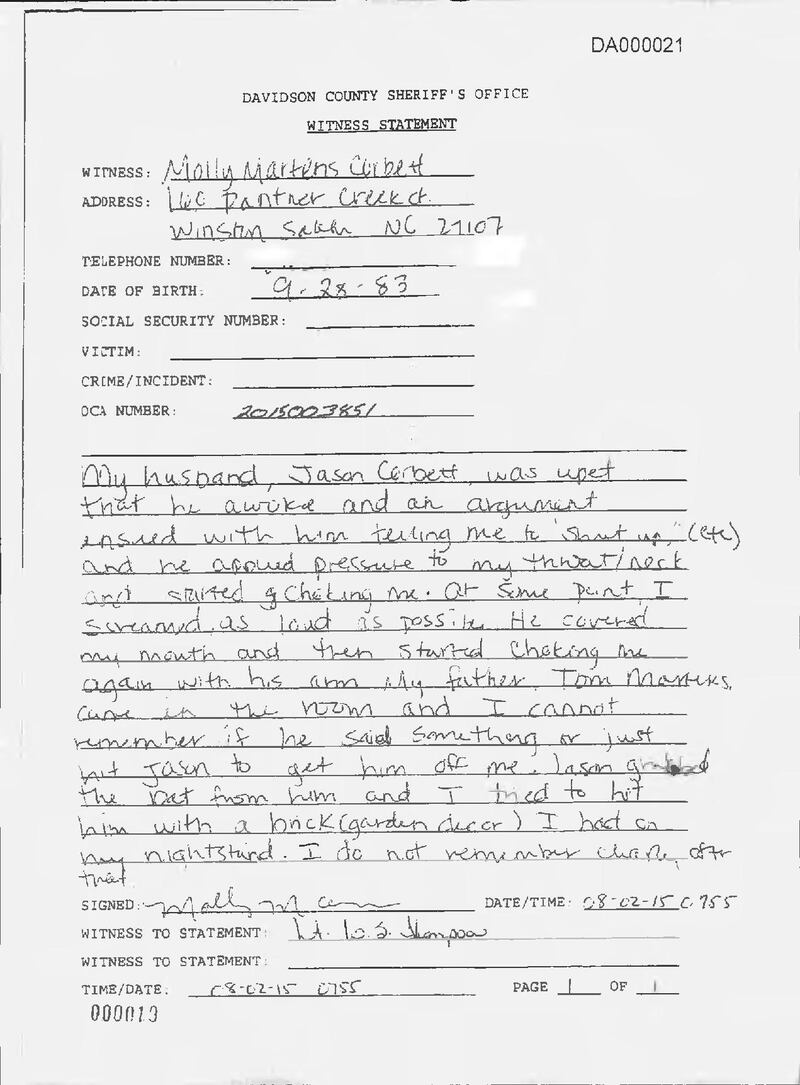 DA000021
DAVIDSON COUNTY SHERIFF'S OFFICE
WITNESS STATEMENT
WITNESS: Molly Martens Corbett
ADDRESS: 160 Panther Creek ct.
Winston Salem NC 27107
TELEPHONE NUMBER:
DATE OF BIRTH: 9-28-83
SOCIAL SECURITY NUMBER:
VICTIM:
CRIME/INCIDENT:
OCA NUMBER: 2015003851
My husband, Jason Corbett, was upet
that he awoke and an argument
ensued with him telling me to "shut up," (etc)
and he applied pressure to my throat/neck
and started choking me. At some point, I
screamed as loud as possible. He covered
my mouth and then started choking me
again with his arm. My father, Tom Martens,
came in the room and I cannot
remember if he said something or just
hit Jason to get him off me. Jason grabbed
the bat from him and I tried to hit
him with a brick (garden decor) I had on
my nightstand. I do not remember clearly after
that.
SIGNED: DATE/TIME: 08-02-15 0755
WITNESS TO STATEMENT: Lt. Thompson
WITNESS TO STATEMENT:
TIME/DATE: 08-02-15 0755 PAGE 1 OF 1
000010